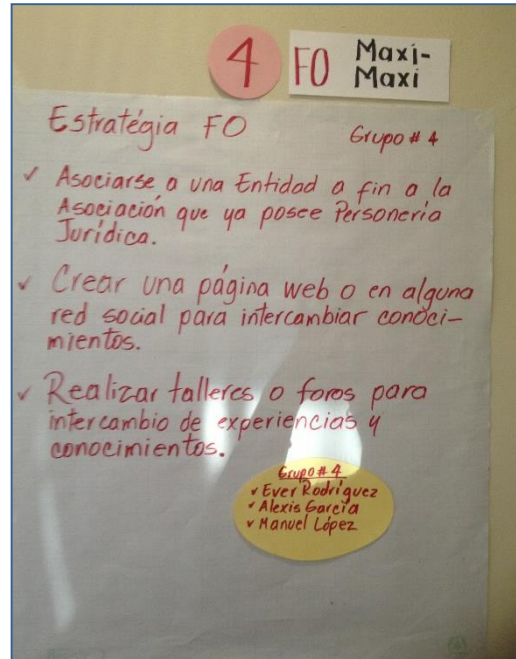 4 FO Maxi-
Maxi
Estratégia FO
Grupo # 4
✓ Asociarse a una Entidad a fin a la
Asociación que ya posee Personería
Jurídica.
✓ Crear una página web o en alguna
red social para intercambiar conoci-
mientos.
✓ Realizar talleres o foros para
intercambio de experiencias y
conocimientos.
Grupo # 4
✓ Ever Rodríguez
✓ Alexis García
✓ Manuel López